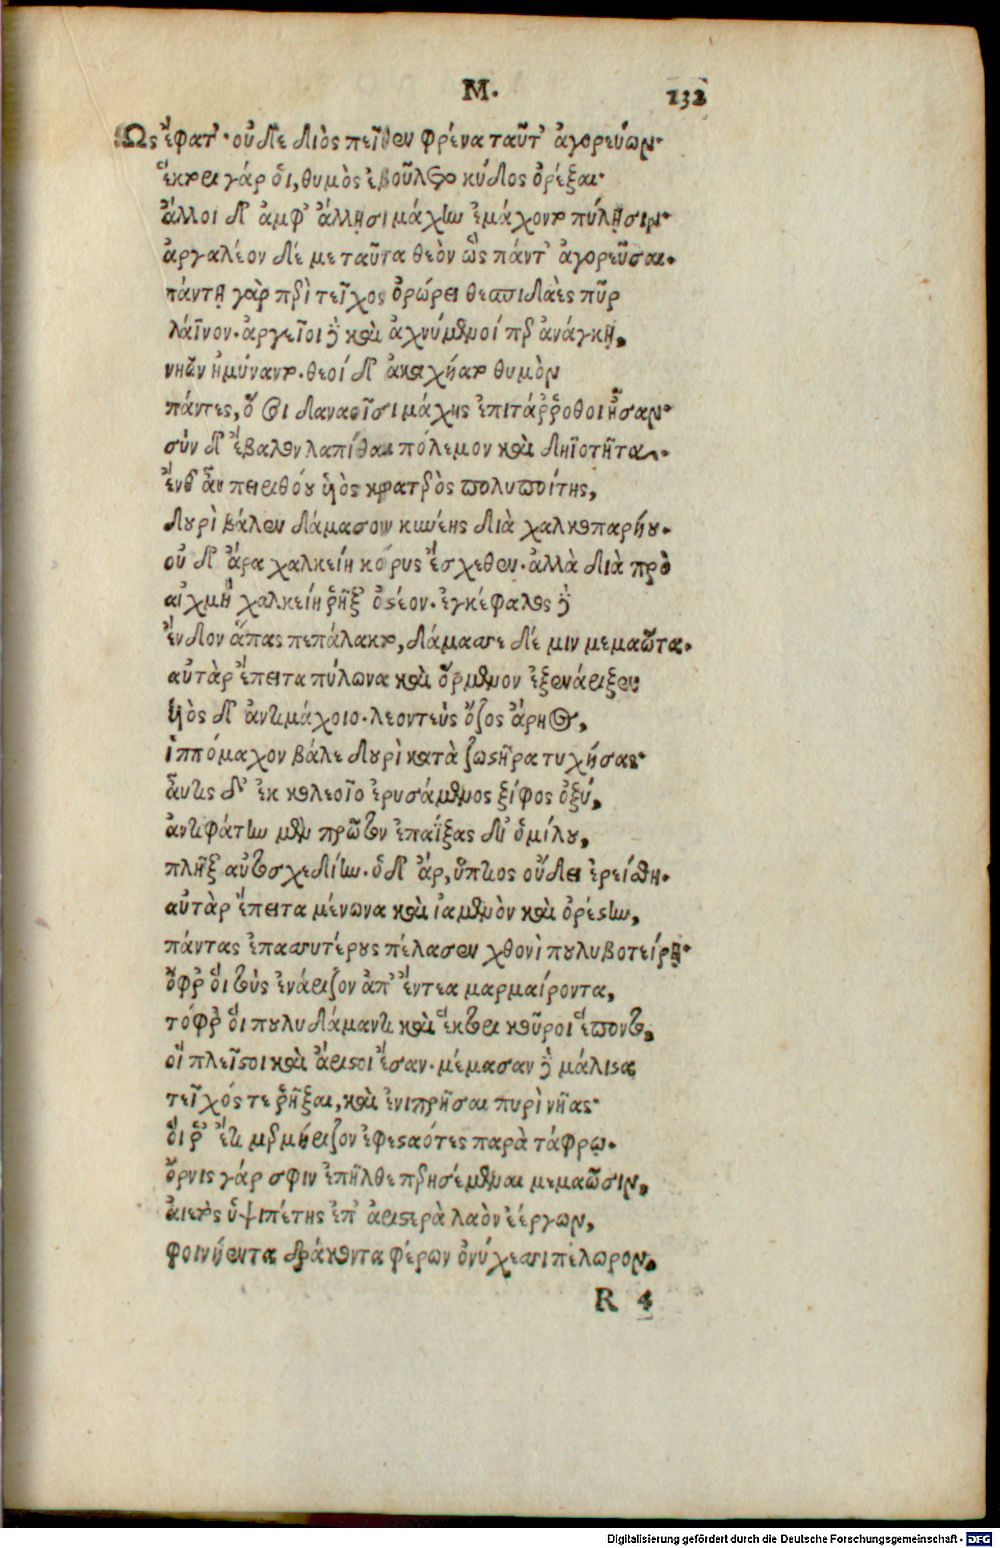 M.
132
Ὣς ἔφατ'· οὐδὲ διὸς πεῖθεν φρένα ταῦτ' ἀγορεύων·
ἕκτορι γάρ οἱ, θυμὸς ἐβούλετο κύδος ὀρέξαι·
ἄλλοι δ' ἀμφ' ἄλλῃσι μάχην ἐμάχοντο πύλῃσιν·
ἀργαλέον δέ με ταῦτα θεὸν ὣς πάντ' ἀγορεῦσαι.
πάντῃ γὰρ περὶ τεῖχος ὀρώρει θεσπιδαὲς πῦρ
λάϊνον. ἀργεῖοι δὲ καὶ ἀχνύμενοί περ ἀνάγκῃ,
νηῶν ἠμύναντο. θεοί δ' ἀκαχήατο θυμὸν
πάντες, ὅσοι δαναοῖσι μάχης ἐπιτάῤῥοθοι ἦσαν·
σὺν δ' ἔβαλον λαπίθαι πόλεμον καὶ δηϊοτῆτα.
ἔνθ' αὖ πειριθόου υἱὸς κρατερὸς πολυποίτης,
δουρὶ βάλεν δάμασον κυνέης διὰ χαλκοπαρήου.
οὐ δ' ἄρα χαλκείη κόρυς ἔσχεθεν. ἀλλὰ διὰ πρὸ
αἰχμὴ χαλκείη ῥῆξ' ὀστέον. ἐγκέφαλος δὲ
ἔνδον ἅπας πεπάλακτο, δάμασσε δέ μιν μεμαῶτα.
αὐτὰρ ἔπειτα πύλωνα καὶ ὄρμενον ἐξενάριξεν
υἱὸς δ' ἀντιμάχοιο. λεοντεὺς ὄζος ἄρηος,
ἱππόμαχον βάλε δουρὶ κατὰ ζωστῆρα τυχήσας·
αὖτις δ' ἐκ κολεοῖο ἐρυσάμενος ξίφος ὀξύ,
ἀντιφάτην μὲν πρῶτον ἐπαΐξας δι' ὁμίλου,
πλῆξ' αὐτοσχεδίην. ὁ δ' ἄρ, ὕπτιος οὔδει ἐρείσθη.
αὐτὰρ ἔπειτα μένωνα καὶ ἰαμενὸν καὶ ὀρέστην,
πάντας ἐπασσυτέρους πέλασεν χθονὶ πουλυβοτείρῃ·
ὄφρ' οἱ τοὺς ἐνάριζον ἀπ' ἔντεα μαρμαίροντα,
τόφρ' οἱ πουλυδάμαντι καὶ ἕκτορι κοῦροι ἕποντο,
οἳ πλεῖστοι καὶ ἄριστοι ἔσαν. μέμασαν δὲ μάλιστα
τεῖχός τε ῥῆξαι, καὶ ἐνιπρῆσαι πυρὶ νῆας·
οἵ ῥ' ἔτι μερμήριζον ἐφεσταότες παρὰ τάφρῳ.
ὄρνις γάρ σφιν ἐπῆλθε περησέμεναι μεμαῶσιν,
αἰετὸς ὑψιπέτης ἐπ' ἀριστερὰ λαὸν ἐέργων,
φοινήεντα δράκοντα φέρων ὀνύχεσσι πέλωρον.
R 4
Digitalisierung gefördert durch die Deutsche Forschungsgemeinschaft - DFG